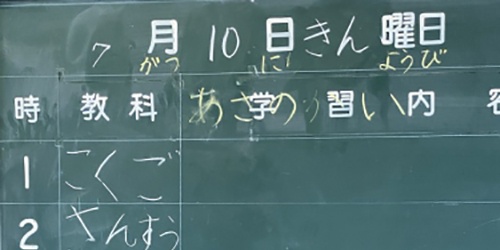 7月10日きん曜日
がつ にち ようび
時 教科 学習内容
あさの
1 こくご
2 さんすう